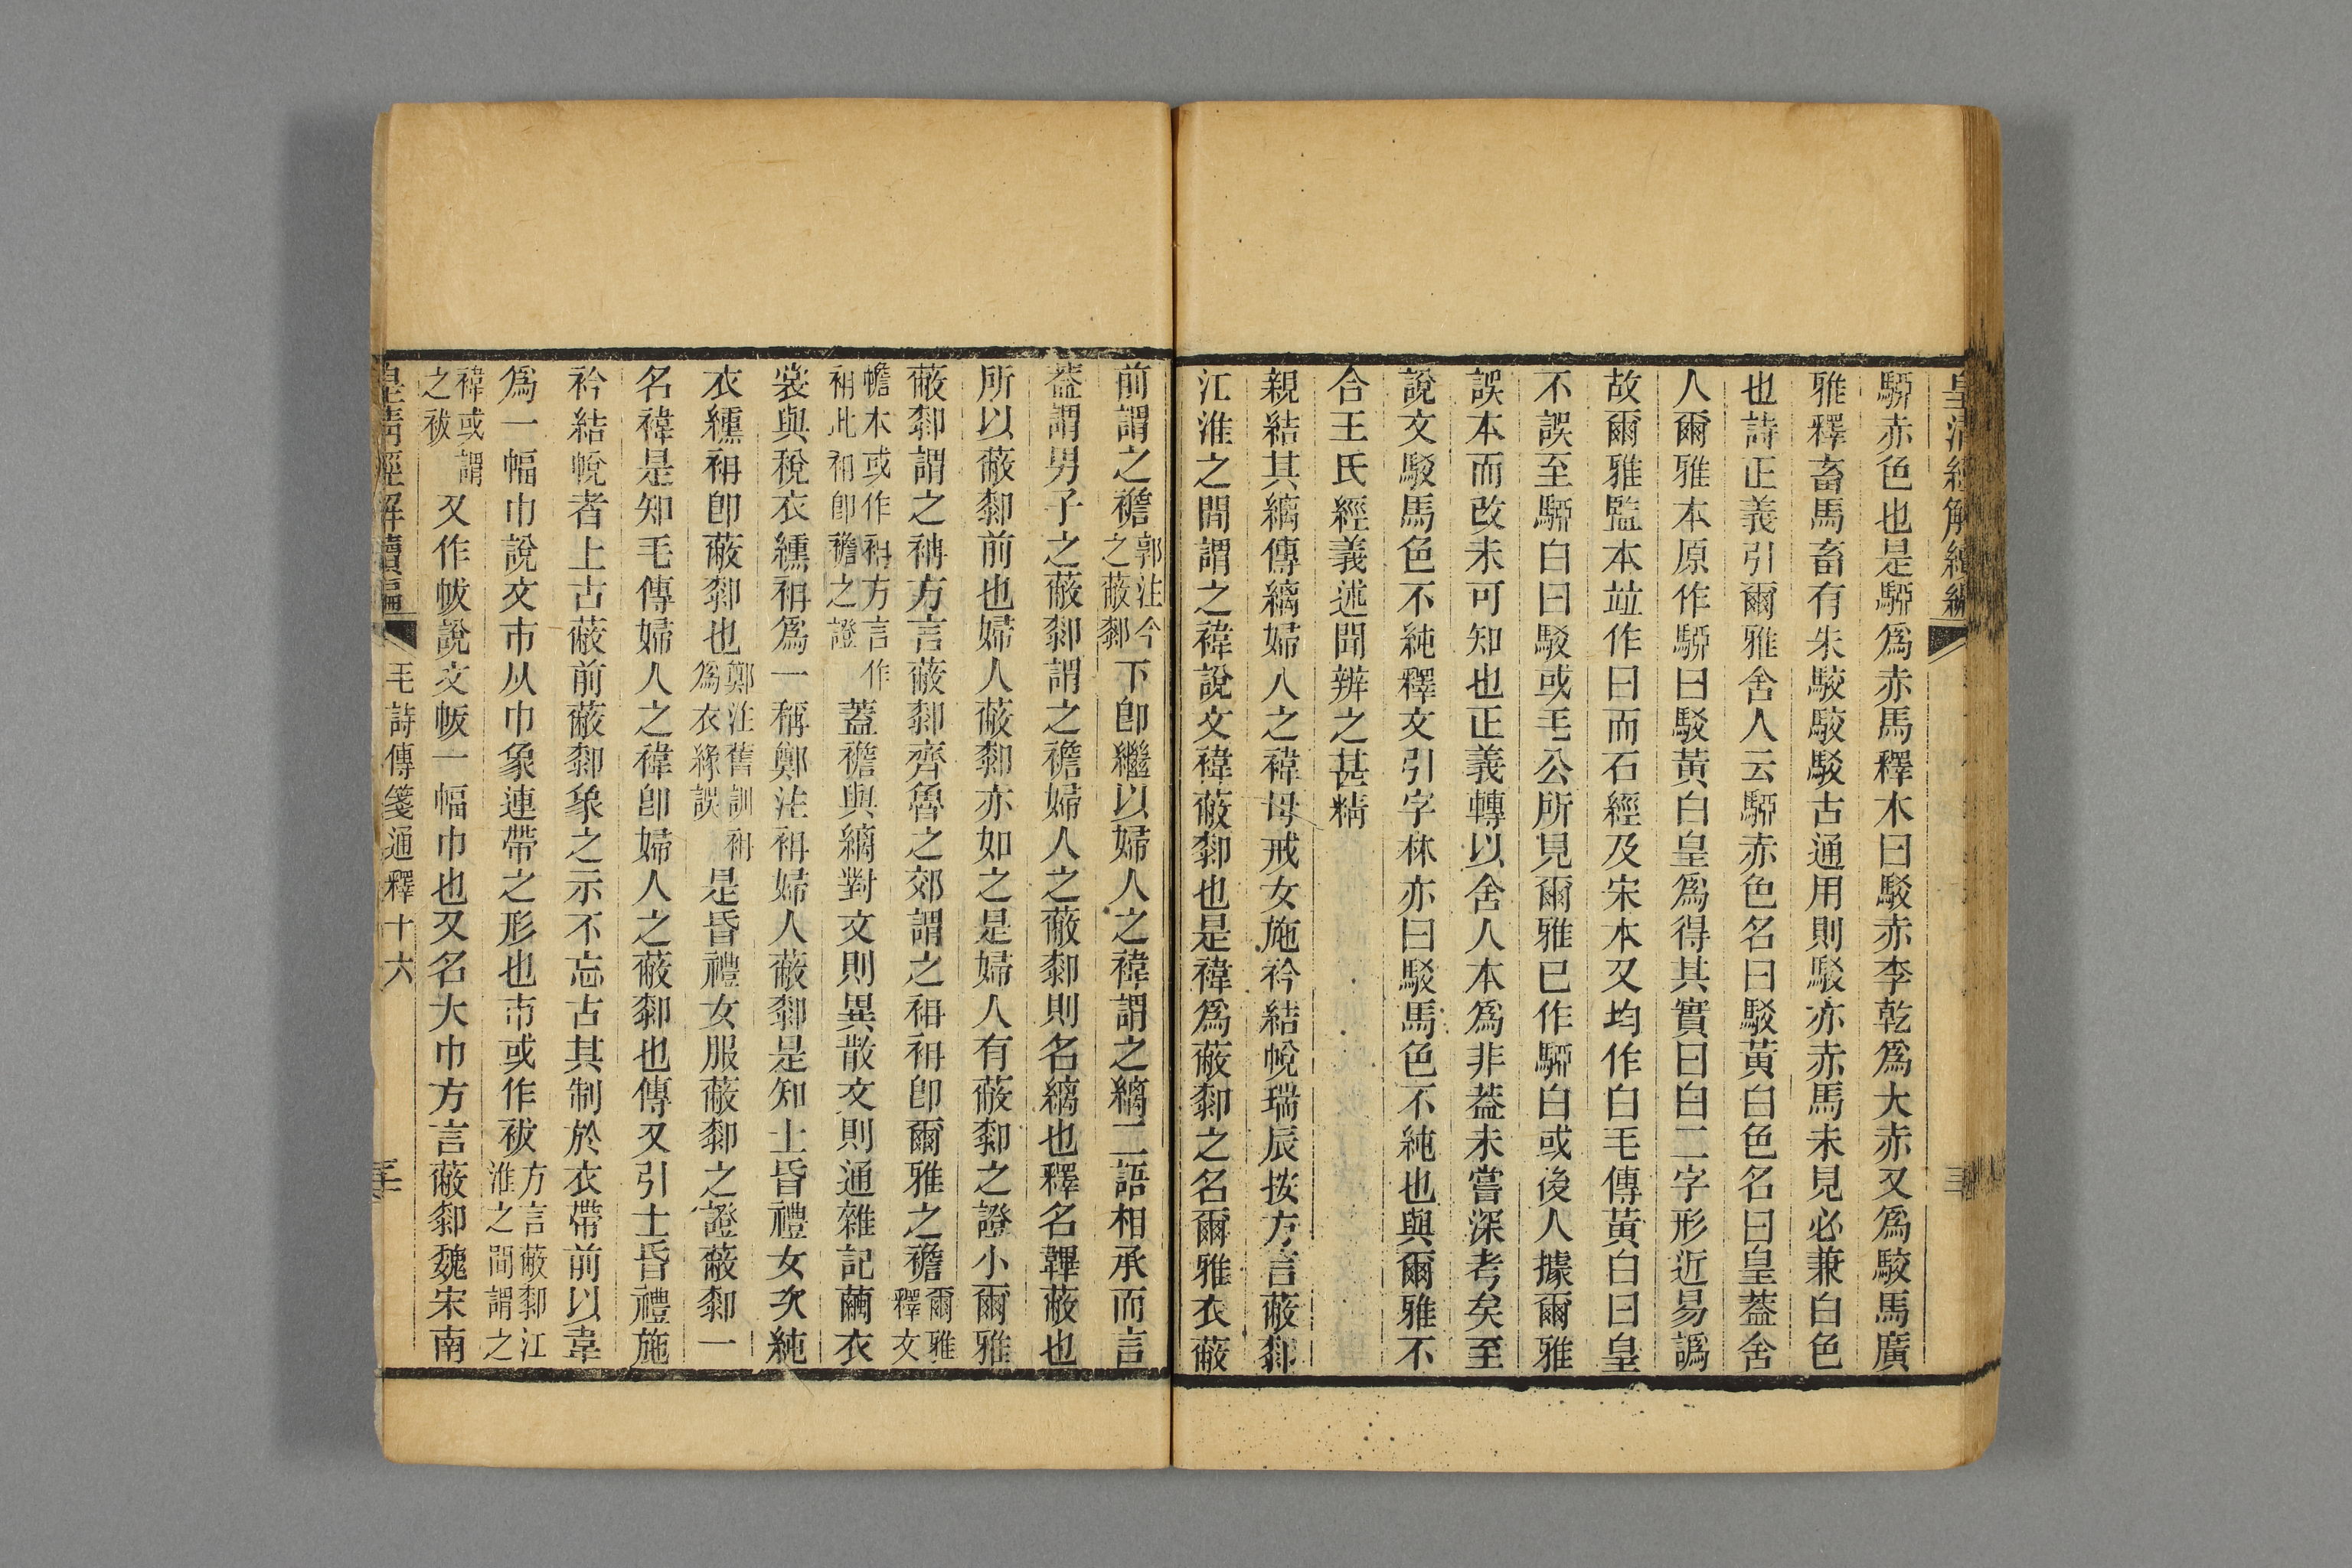 皇清經解續編
三
騂赤色也是騂爲赤馬釋木曰駁赤李乾爲大赤又爲駁馬廣
雅釋畜馬畜有朱駮駮駁古通用則駁亦赤馬未見必兼白色
也詩正義引爾雅舍人云騂赤色名曰駁黃白色名曰皇葢舍
人爾雅本原作騂曰駁黃白皇爲得其實曰白二字形近易譌
故爾雅監本竝作曰而石經及宋本又均作白毛傳黃白曰皇
不誤至騂白曰駁或毛公所見爾雅已作騂白或後人據爾雅
誤本而改未可知也正義轉以舍人本爲非葢未嘗深考矣至
說文駁馬色不純釋文引字林亦曰駁馬色不純也與爾雅不
合王氏經義述聞辨之甚精
親結其縭傳縭婦人之褘母戒女施衿結帨瑞辰按方言蔽䣛
江淮之間謂之褘說文褘蔽䣛也是褘爲蔽䣛之名爾雅衣蔽
前謂之襜郭注今之蔽䣛下卽繼以婦人之褘謂之縭二語相承而言
葢謂男子之蔽䣛謂之襜婦人之蔽䣛則名縭也釋名韠蔽也
所以蔽䣛前也婦人蔽䣛亦如之是婦人有蔽䣛之證小爾雅
蔽䣛謂之袡方言蔽䣛齊魯之郊謂之袡袡卽爾雅之襜爾雅釋文
幨本或作袡方言作袡此袡卽襜之證蓋襜與縭對文則異散文則通雜記繭衣
裳與稅衣纁袡爲一稱鄭注袡婦人蔽䣛是知士昏禮女次純
衣纁袡卽蔽䣛也鄭注舊訓袡爲衣緣誤是昏禮女服蔽䣛之證蔽䣛一
名褘是知毛傳婦人之褘卽婦人之蔽䣛也傳又引士昏禮施
衿結帨者上古蔽前蔽䣛象之示不忘古其制於衣帶前以韋
爲一幅巾說文巿从巾象連帶之形也巿或作袚方言蔽䣛江淮之間謂之
褘或謂之袚又作帗說文帗一幅巾也又名大巾方言蔽䣛魏宋南
皇清經解續編
毛詩傳箋通釋十六